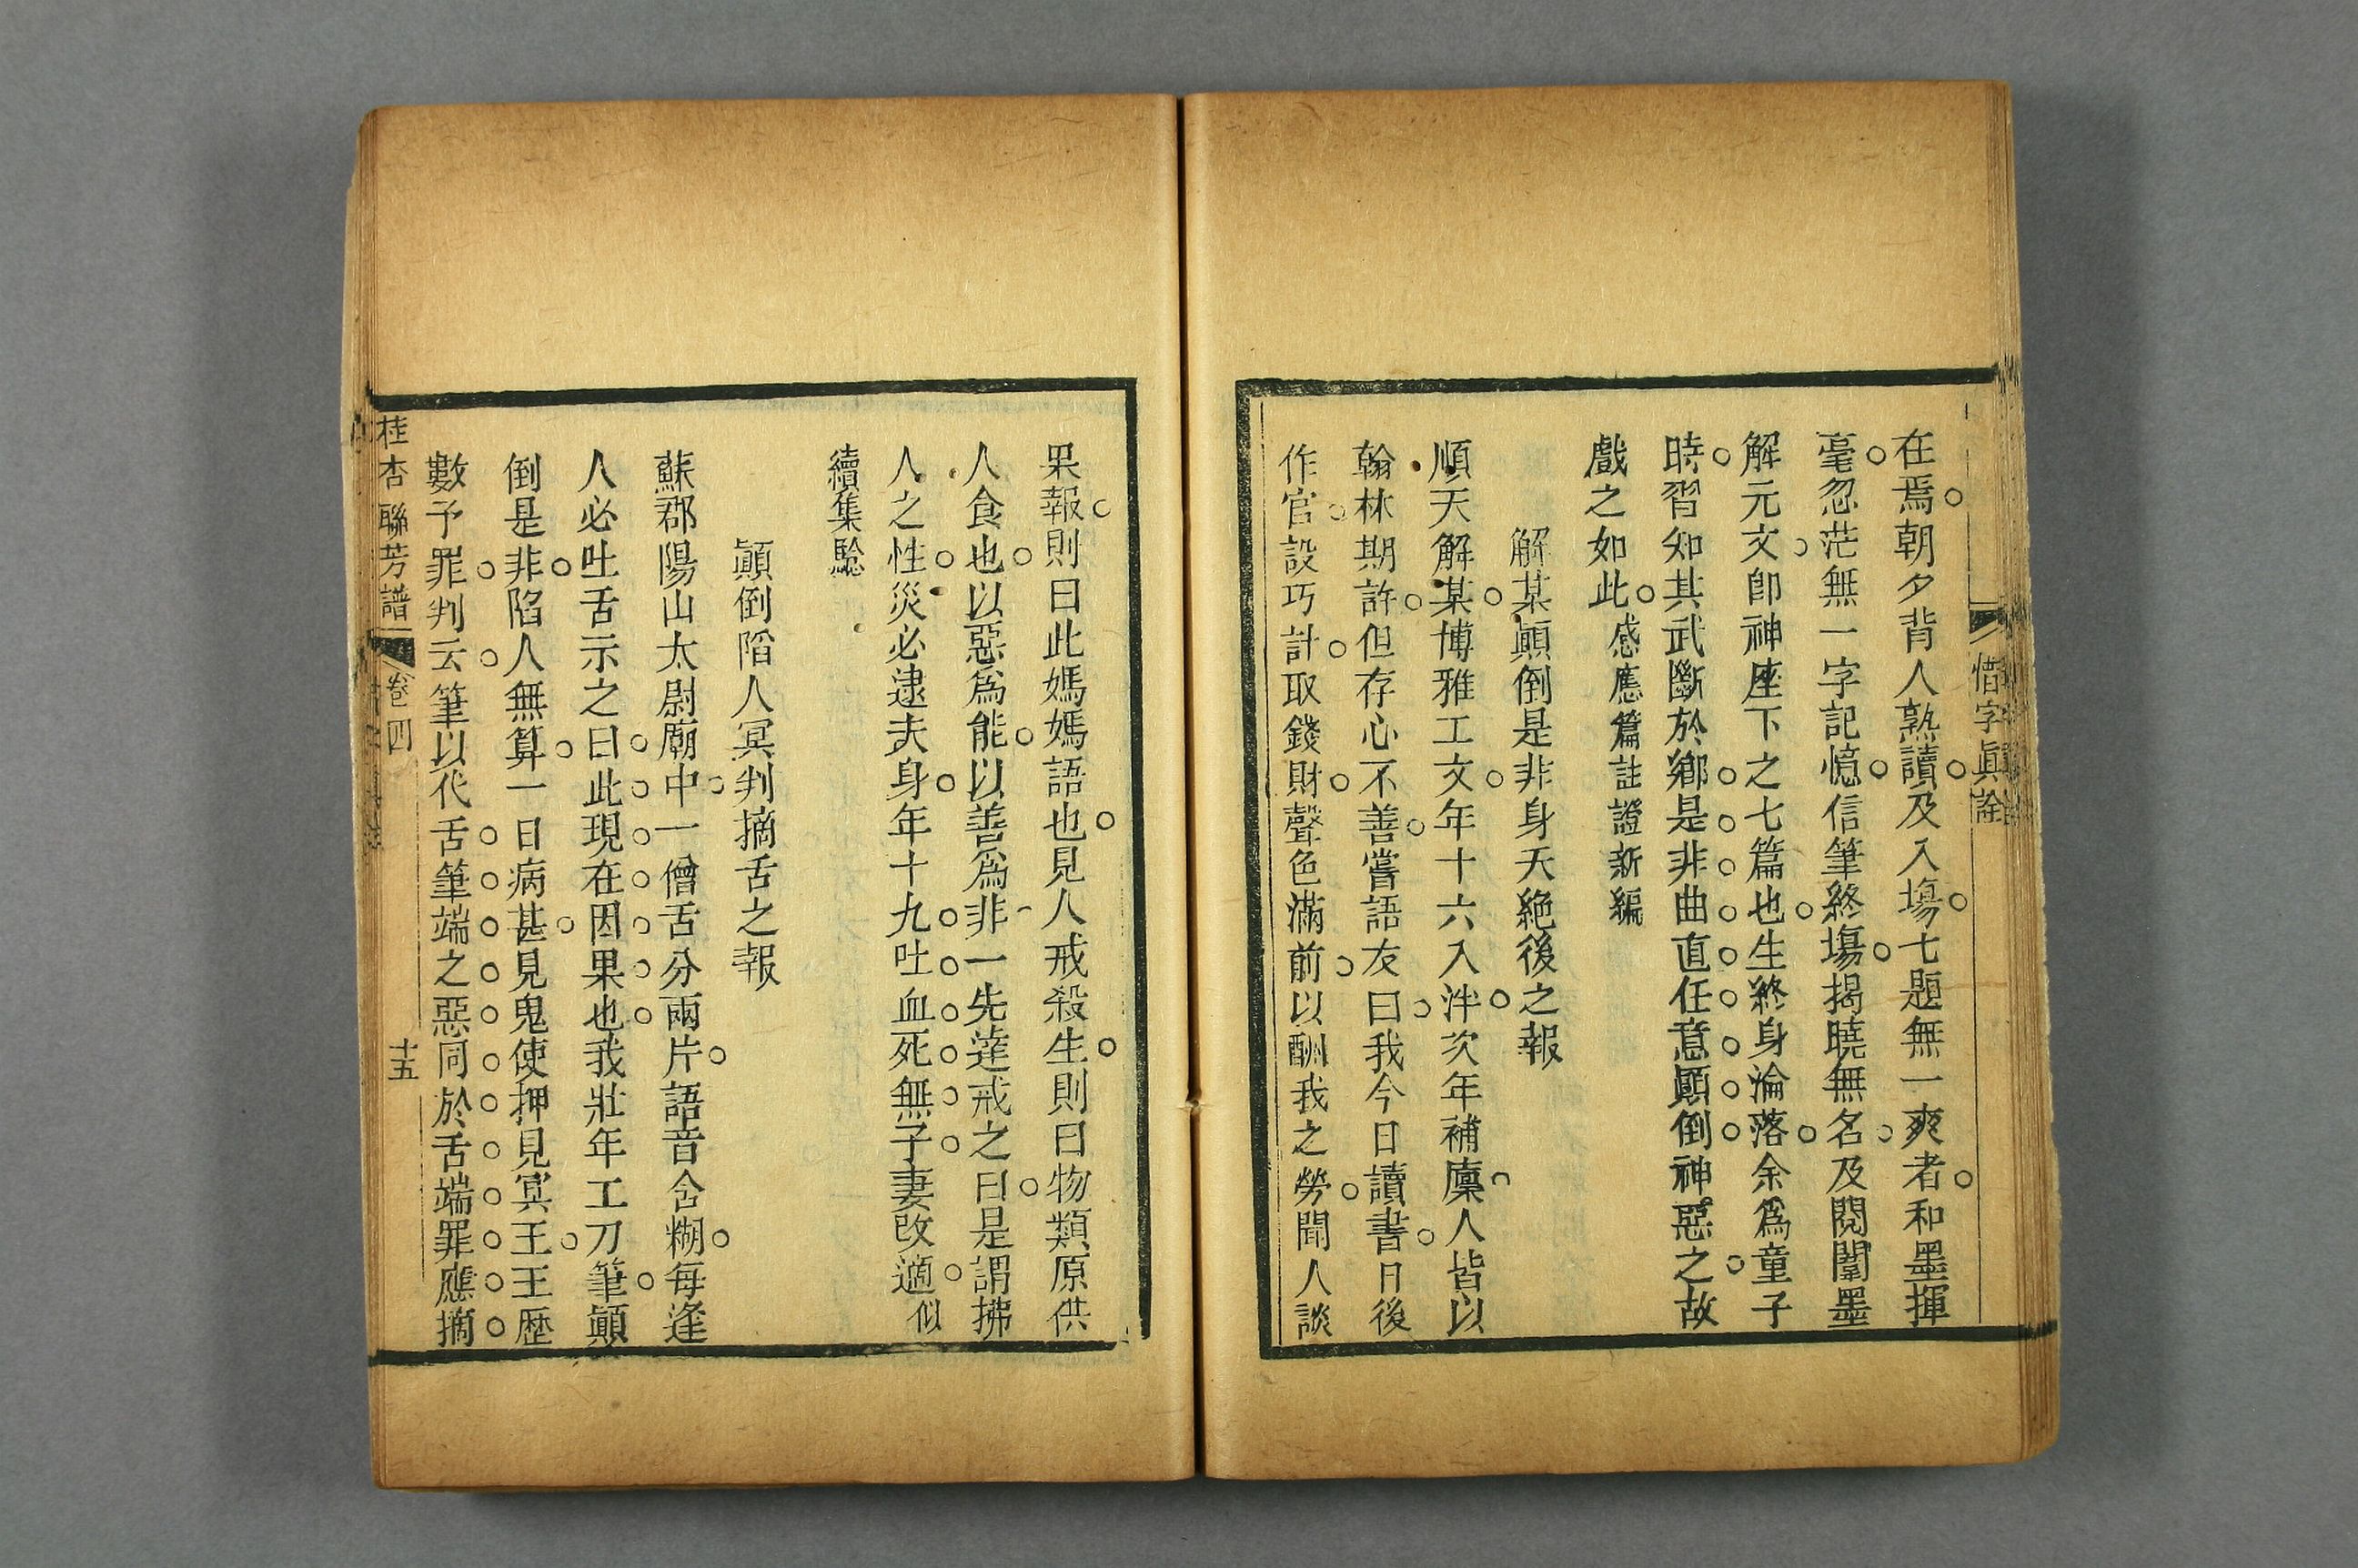 惜字眞詮
在焉朝夕背人熟讀及入場七題無一爽者和墨揮
毫忽茫無一字記憶信筆終場揭曉無名及閱闈墨
解元文卽神座下之七篇也生終身淪落余爲童子
時習知其武斷於鄉是非曲直任意顚倒神惡之故
戲之如此感應篇註證新編
解某顚倒是非身夭絕後之報
順天解某博雅工文年十六入泮次年補廩人皆以
翰林期許但存心不善嘗語友曰我今日讀書日後
作官設巧計取錢財聲色滿前以酬我之勞聞人談
果報則曰此媽媽語也見人戒殺生則曰物類原供
人食也以惡爲能以善爲非一先達戒之曰是謂拂
人之性災必逮夫身年十九吐血死無子妻改適似
續集驗
顚倒陷人冥判摘舌之報
蘇郡陽山太尉廟中一僧舌分兩片語音含糊每逢
人必吐舌示之曰此現在因果也我壯年工刀筆顚
倒是非陷人無算一日病甚見鬼使押見冥王王歷
數予罪判云筆以代舌筆端之惡同於舌端罪應摘
桂杏聯芳譜 卷四 十五